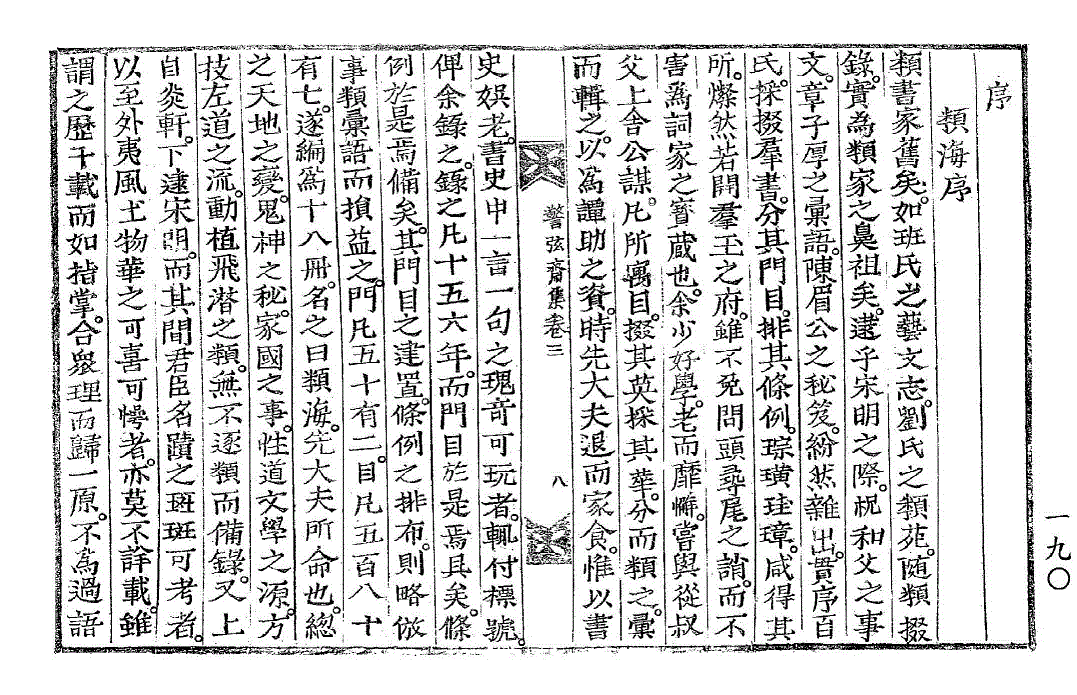 序
類海序
類書家舊矣。如班氏之藝文志。劉氏之類苑。隨類掇
錄。實爲類家之鼻祖矣。逮乎宋明之際。祝和父之事
文。章子厚之彙語。陳眉公之秘笈。紛然雜出。貫序百
氏。採掇羣書。分其門目。排其條例。琮璜珪璋。咸得其
所。燦然若開羣玉之府。雖不免問頭尋尾之誚。而不
害爲詞家之寶藏也。余少好學。老而靡懈。嘗與從叔
父上舍公謀。凡所寓目。掇其英採其華。分而類之。彙
而輯之。以爲譚助之資。時先大夫退而家食。惟以書
警弦齋集卷三 八
史娛老。書史中一言一句之瑰奇可玩者。輒付標號。
俾余錄之。錄之凡十五六年。而門目於是焉具矣。條
例於是焉備矣。其門目之建置。條例之排布。則略倣
事類彙語而損益之。門凡五十有二。目凡五百八十
有七。遂編爲十八冊。名之曰類海。先大夫所命也。總
之天地之變。鬼神之秘。家國之事。性道文學之源。方
技左道之流。動植飛潛之類。無不逐類而備錄。又上
自炎軒。下逮宋明。而其間君臣名蹟之斑斑可考者。
以至外夷風土物華之可喜可愕者。亦莫不詳載。雖
謂之歷千載而如指掌。合衆理而歸一原。不爲過語
一九〇